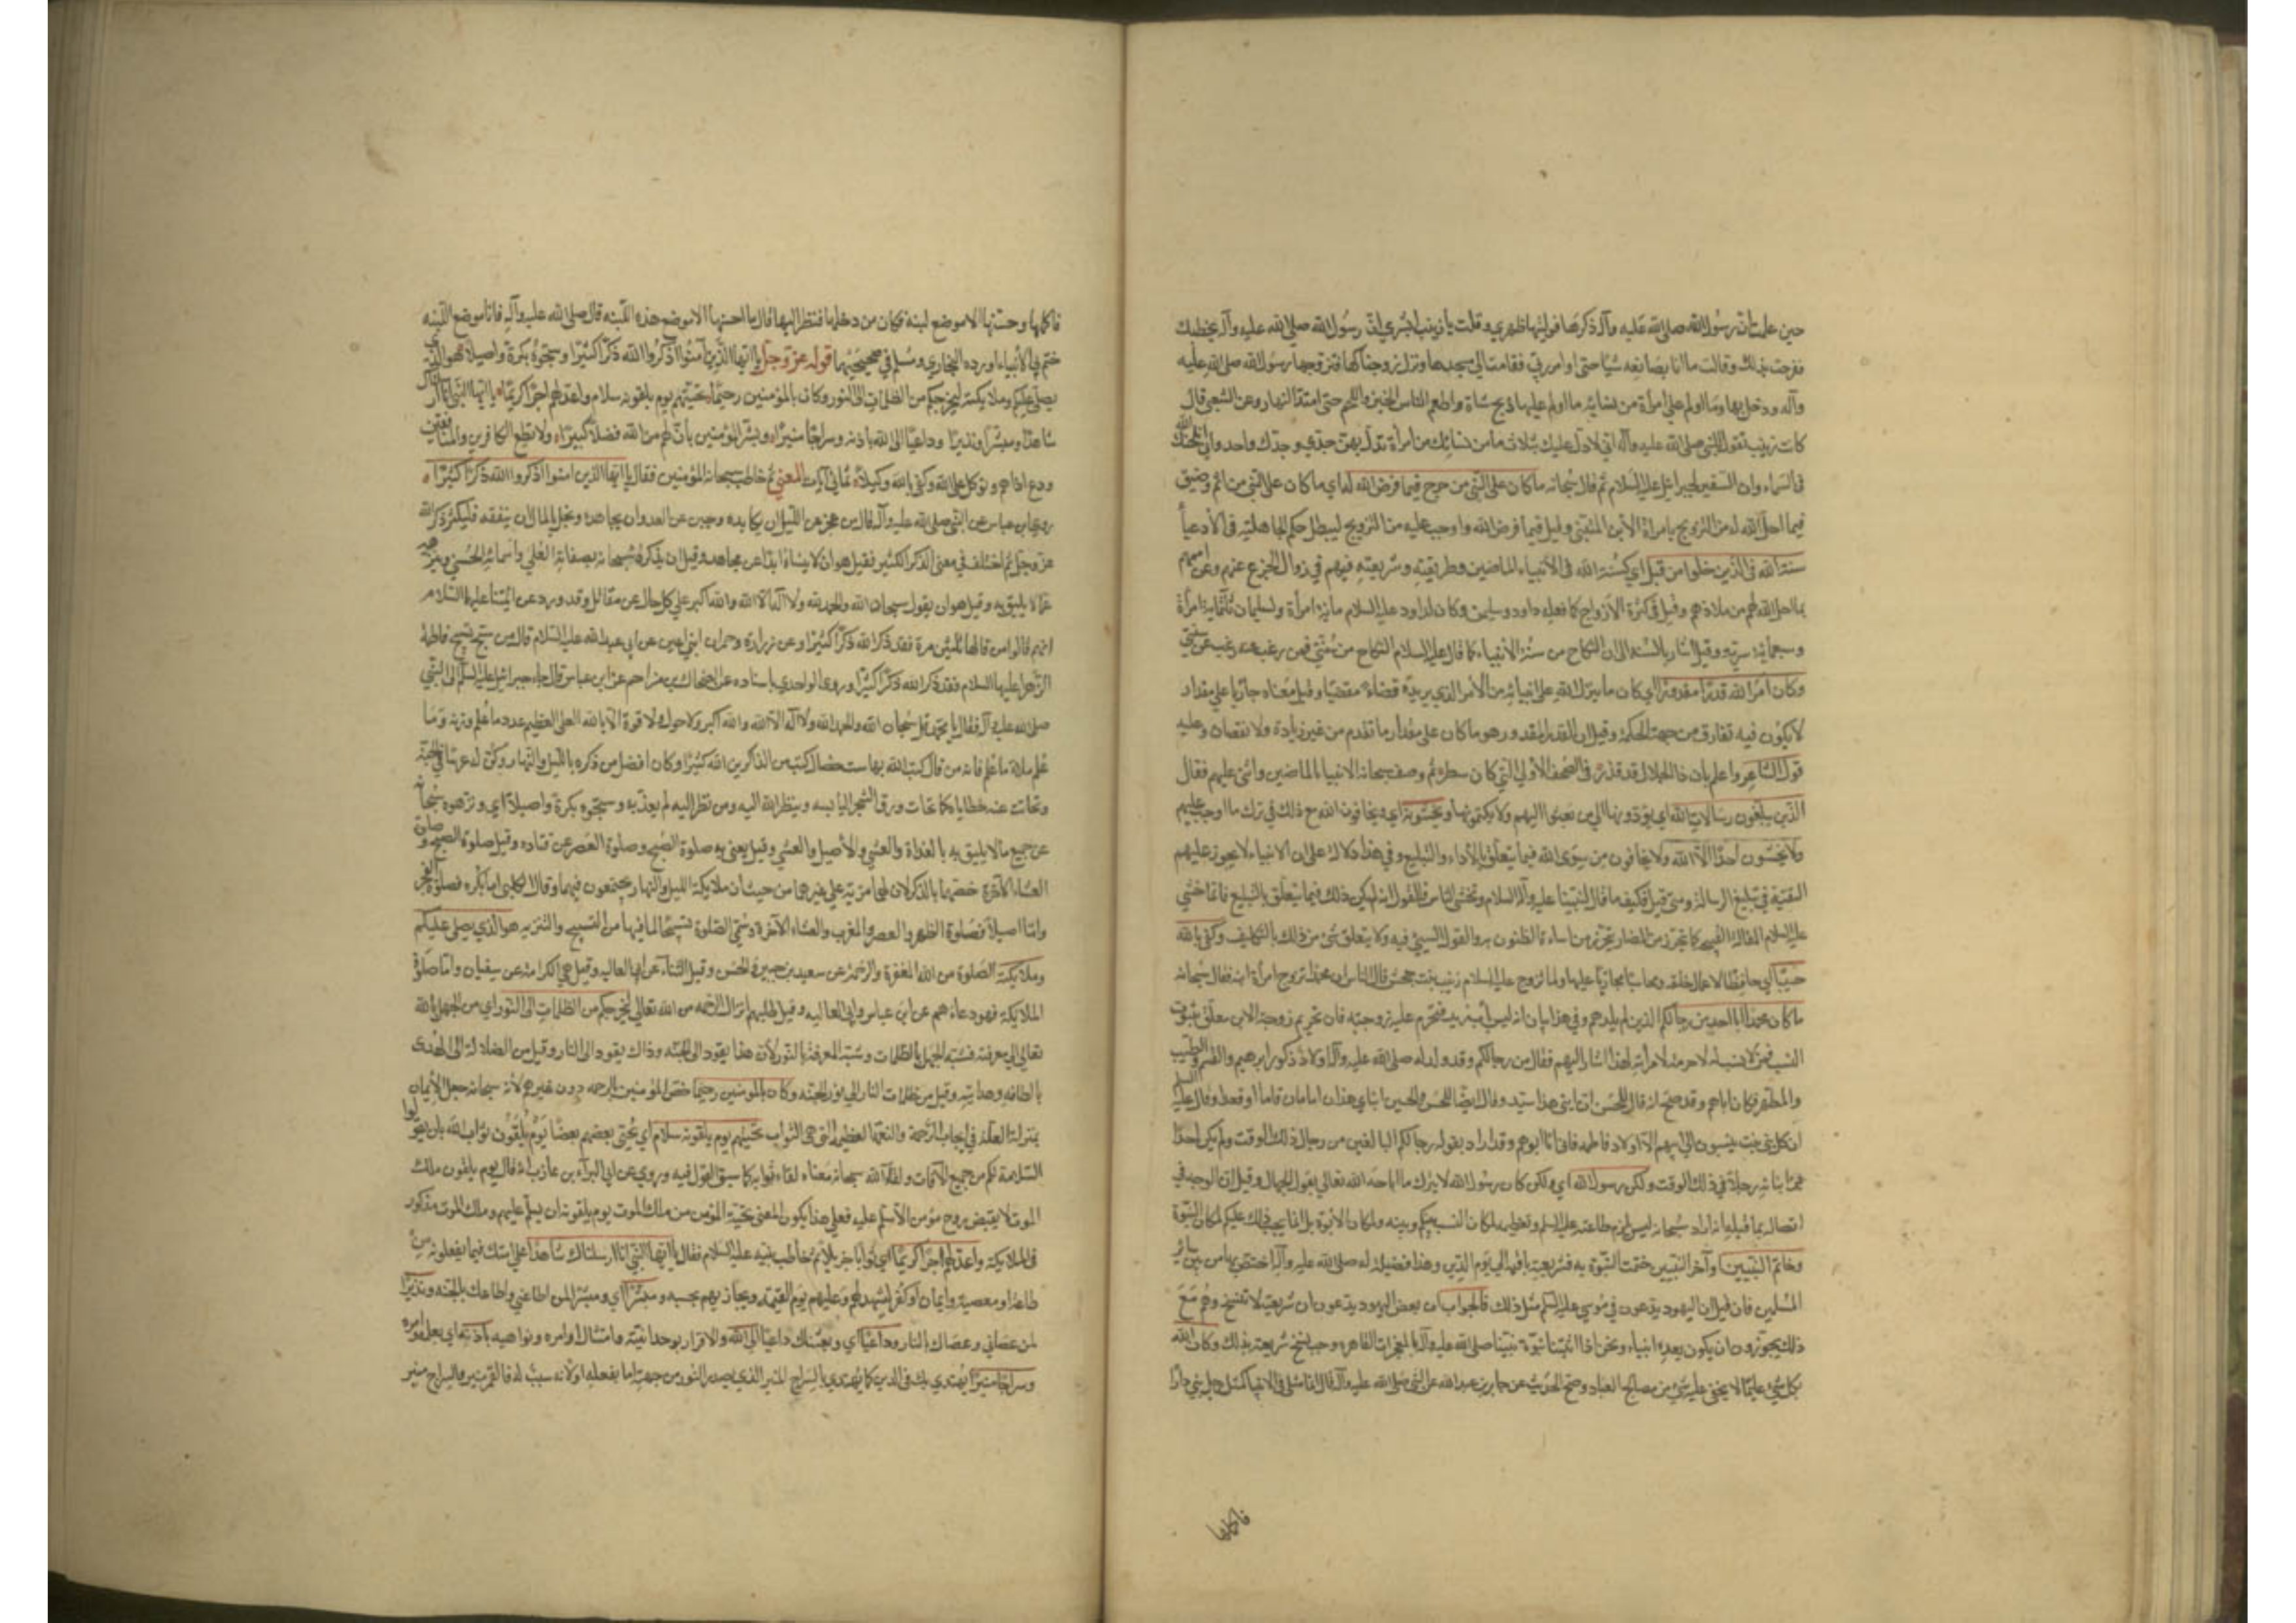 حين علمت ان رسول الله صلى الله عليه وآله ذكرها فوليتها ظهري وقلت يا زينب ابشري ان رسول الله صلى الله عليه وآله يخطبك
ففرحت بذلك وقالت ما انا بصانعه شيئا حتى اوامر ربي فقامت الى مسجدها ونزل زوجناكها فتزوجها رسول الله صلى الله عليه
وآله ودخل بها وما اولم على امرأة من نسائه ما اولم عليها ذبح شاة واطعم الناس الخبز واللحم حتى امتد النهار وعن الشعبي قال
كانت زينب تقول للنبي صلى الله عليه وآله اني لادل عليك بثلاث ما من نسائك من امرأة تدل بهن جدي وجدك واحد واني انكحنيك الله
في السماء وان السفير لجبرائيل عليه السلام ثم قال سبحانه ما كان على النبي من حرج فيما فرض الله له اي ما كان على النبي من اثم وضيق
فيما احل الله له من التزويج بامرأة الابن المتبنى وقيل فيما فرض الله واوجب عليه من التزويج ليبطل حكم الجاهلية في الادعياء
سنة الله في الذين خلوا من قبل اي كسنة الله في الانبياء الماضين وطريقته وشريعته فيهم في زوال الحرج عنهم وعن اممهم
بما احل الله لهم من ملاذهم وقيل في كثرة الازواج كما فعله داود وسليمن وكان لداود عليه السلام ماية امرأة ولسليمان ثلثماية امرأة
وسبعماية سرية وقيل اشار بالسنة الى ان النكاح من سنة الانبياء كما قال عليه السلام النكاح من سنتي فمن رغب عنه رغب عن سنتي
وكان امر الله قدرا مقدورا اي كان ما ينزله الله على انبيائه من الامر الذي يريده قضاء مقضيا وقيل معناه جاريا على مقدار
لا يكون فيه تفاوت من جهة الحكمة وقيل ان القدر المقدور هو ما كان على مقدار ما تقدم من غير زيادة ولا نقصان وعليه
قول الشاعر واعلم بان ذا الجلال قد قدر في الصحف الاولى التي كان سطر ثم وصف سبحانه الانبياء الماضين واثنى عليهم فقال
الذين يبلغون رسالات الله اي يؤدونها الى من بعثوا اليهم ولا يكتمونها ويخشونه اي ويخافون الله مع ذلك في ترك ما اوجبه عليهم
ولا يخشون احدا الا الله ولا يخافون من سوى الله فيما يتعلق بالاداء والتبليغ وفي هذا دلالة على ان الانبياء لا يجوز عليهم
التقية في تبليغ الرسالة ومتى قيل فكيف ما قال لنبينا عليه وآله السلام وتخشى الناس فالقول انه لم يكن ذلك فيما يتعلق بالتبليغ وانما خشي
عليه السلام المقالة القبيحة كما يتحرز من المضار يتحرز من اساءة الظنون به والقول السيئ فيه ولا يتعلق شئ من ذلك بالتكليف وكفى بالله
حسيبا اي حافظا لاعمال خلقه ومحاسبا مجازيا عليها ولما تزوج عليه السلام زينب بنت جحش قال الناس ان محمدا تزوج امرأة ابنه فقال سبحانه
ما كان محمد ابا احد من رجالكم الذين لم يلدهم وفي هذا بيان انه ليس باب لزيد فتحرم عليه زوجته فان تحريم زوجة الابن معلق بثبوت
النسب فمن لا نسب له لا حرمة لامرأته لهذا اشار اليهم فقال من رجالكم وقد ولد له صلى الله عليه وآله اولاد ذكور ابرهيم والقسم والطيب
والمطهر فكان اباهم وقد صح انه قال للحسن ان ابني هذا سيد وقال ايضا للحسن والحسين ابناي هذان امامان قاما او قعدا وقال عليه السلم
ان كل بني بنت ينسبون الى ابيهم الا اولاد فاطمه فاني انا ابوهم وقد اراد بقوله رجالكم البالغين من رجال ذلك الوقت ولم يكن احدا
من ابنائه رجلا في ذلك الوقت ولكن رسول الله اي ولكن كان رسول الله لا يترك ما اباحه الله تعالى بقول الجهال وقيل ان الوجه في
اتصاله بما قبله انه اراد سبحانه ليس يلزم طاعته عليه السلم وتعظيمه لمكان النسب بينكم وبينه ولمكان الابوة بل انما يجب ذلك عليكم لمكان النبوة
وخاتم النبيين اي وآخر النبيين ختمت النبوة به فشريعته باقية الى يوم الدين وهذا فضيلة له صلى الله عليه وآله اختص بها من بين سائر
المرسلين فان قيل ان اليهود يدعون في موسى عليه السلم مثل ذلك فالجواب ان بعض اليهود يدعون ان شريعته لا تنسخ وهم مع
ذلك يجوزون ان يكون بعده انبياء ونحن اذا اثبتنا نبوة نبينا صلى الله عليه وآله بالمعجزات القاهرة وجب نسخ شريعته بذلك وكان الله
بكل شئ عليما لا يخفى عليه شئ من مصالح العباد وصح الحديث عن جابر بن عبد الله عن النبي صلى الله عليه وآله قال انما مثلي في الانبياء كمثل رجل بنى دارا
فاكملها
فاكملها وحسنها الا موضع لبنة فكان من دخلها فنظر اليها قال ما احسنها الا موضع هذه اللبنه قال صلى الله عليه وآله فانا موضع اللبنه
ختم بي الانبياء اورده البخاري ومسلم في صحيحيهما قوله عز وجل يا ايها الذين آمنوا اذكروا الله ذكرا كثيرا وسبحوه بكرة واصيلا هو الذي
يصلي عليكم وملايكته ليخرجكم من الظلمات الى النور وكان بالمؤمنين رحيما تحيتهم يوم يلقونه سلام واعد لهم اجرا كريما يا ايها النبي انا ارسلناك
شاهدا ومبشرا ونذيرا وداعيا الى الله باذنه وسراجا منيرا وبشر المؤمنين بان لهم من الله فضلا كبيرا ولا تطع الكافرين والمنافقين
ودع اذاهم وتوكل على الله وكفى بالله وكيلا ثماني آيات المعنى ثم خاطب سبحانه المؤمنين فقال يا ايها الذين امنوا اذكروا الله ذكرا كثيرا
روى ابن عباس عن النبي صلى الله عليه وآله قال من عجز عن الليل ان يكابده وجبن عن العدو ان يجاهده وبخل بالمال ان ينفقه فليكثر ذكر الله
عز وجل ثم اختلف في معنى الذكر الكثير فقيل هو ان لا ينساه ابدا عن مجاهد وقيل ان يذكره سبحانه بصفاته العلى واسمائه الحسنى وينزهه
عما لا يليق به وقيل هو ان يقول سبحان الله والحمد لله ولا اله الا الله والله اكبر على كل حال عن مقاتل وقد ورد عن ائمتنا عليهم السلام
انهم قالوا من قالها ثلثين مرة فقد ذكر الله ذكرا كثيرا وعن زرارة وحمران ابني اعين عن ابي عبد الله عليه السلام قال من سبح تسبيح فاطمة
الزهرا عليها السلام فقد ذكر الله ذكرا كثيرا وروى الواحدي باسناده عن الضحاك بن مزاحم عن ابن عباس قال جاء جبرائيل عليه السلم الى النبي
صلى الله عليه وآله فقال يا محمد قل سبحان الله والحمد لله ولا اله الا الله والله اكبر ولا حول ولا قوة الا بالله العلي العظيم عدد ما علم وزنة وما
علم ملاء ما علم فانه من قال كتب الله بها ست خصال كتب من الذاكرين الله كثيرا وكان افضل من ذكره بالليل والنهار وكن له غرسا في الجنة
وتحاتت عنه خطاياه كما تحات ورق الشجر اليابسه وينظر الله اليه ومن نظر اليه لم يعذبه وسبحوه بكرة واصيلا اي ونزهوه سبحانه
عن جميع ما لا يليق به بالغداة والعشي والاصيل والعشي وقيل يعنى به صلوة الصبح وصلوة العصر عن قتاده وقيل صلوة الصبح وصلوة
العشاء الآخرة خصهما بالذكر لان لهما مزية على غيرهما من حيث ان ملايكة الليل والنهار يجتمعون فيهما وقال الكلبي اما بكرة فصلوة الفجر
واما اصيلا فصلوة الظهر والعصر والمغرب والعشاء الآخرة وسمي الصلوة تسبيحا لما فيها من التسبيح والتنزيه هو الذي يصلي عليكم
وملايكته الصلوة من الله المغفرة والرحمة عن سعيد بن جبير والحسن وقيل الثناء عن ابي العاليه وقيل هي الكرامة عن سفيان واما صلوة
الملايكة فهو دعاءهم عن ابن عباس وابي العاليه وقيل طلبهم انزال الرحمه من الله تعالى ليخرجكم من الظلمات الى النور اي من الجهل بالله
تعالى الى معرفته فشبه الجهل بالظلمات وشبه المعرفة بالنور لان هذا يقود الى الجنه وذاك يقود الى النار وقيل من الضلالة الى الهدى
بالطافه وهدايته وقيل من ظلمات النار الى نور الجنه وكان بالمومنين رحيما خص المؤمنين بالرحمه دون غيرهم لانه سبحانه جعل الايمان
بمنزلة العلة في ايجاب الرحمة والنعمة العظيمة التي هي الثواب تحيتهم يوم يلقونه سلام اي يحيي بعضهم بعضا يوم يلقون ثواب الله بان يقولوا
السلامة لكم من جميع الآفات ولقاء الله سبحانه معناه لقاء ثوابه كما سبق القول فيه وروي عن البرآء بن عازب انه قال يوم يلقون ملك
الموت لا يقبض روح مؤمن الا سلم عليه فعلى هذا يكون المعنى تحية المؤمن من ملك الموت يوم يلقونه ان يسلم عليهم وملك الموت مذكور
في الملايكة واعد لهم اجرا كريما اي ثوابا جزيلا ثم خاطب نبيه عليه السلام فقال يا ايها النبي انا ارسلناك شاهدا على امتك فيما يفعلونه من
طاعة او معصية وايمان او كفر لتشهد لهم وعليهم يوم القيمة ويجازيهم بحسبه ومبشرا اي ومبشرا لمن اطاعني واطاعك بالجنه ونذيرا
لمن عصاني وعصاك بالنار وداعيا اي وبعثناك داعيا الى الله والاقرار بوحدانيته وامتثال اوامره ونواهيه باذنه اي بعلمه وامره
وسراجا منيرا يهتدى بك في الدين كما يهتدى بالسراج المنير الذي يصدر النور من جهته اما بفعله او لانه سبب له فالقمر منير والسراج منير